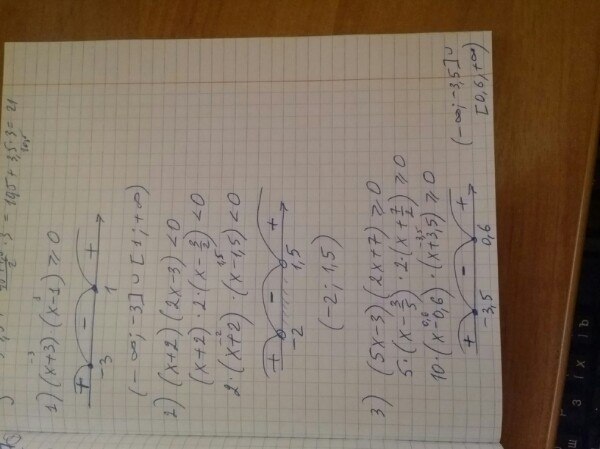 = 10,5 + 3,5 · 3 = 21
10,5
1) (x+3) · (x-1) ≥ 0
-3 1
+ - +
-3 1
(-∞; -3] ∪ [1; +∞)
2) (x+2) (2x-3) < 0
(x+2) · 2 · (x - 3/2) < 0
2 · (x+2) · (x-1,5) < 0
-2 1,5
+ - +
-2 1,5
(-2; 1,5)
3) (5x-3) (2x+7) ≥ 0
5 · (x - 3/5) · 2 · (x + 7/2) ≥ 0
10 · (x-0,6) · (x+3,5) ≥ 0
0,6 -3,5
+ - +
-3,5 0,6
(-∞; -3,5] ∪
[0,6; +∞)